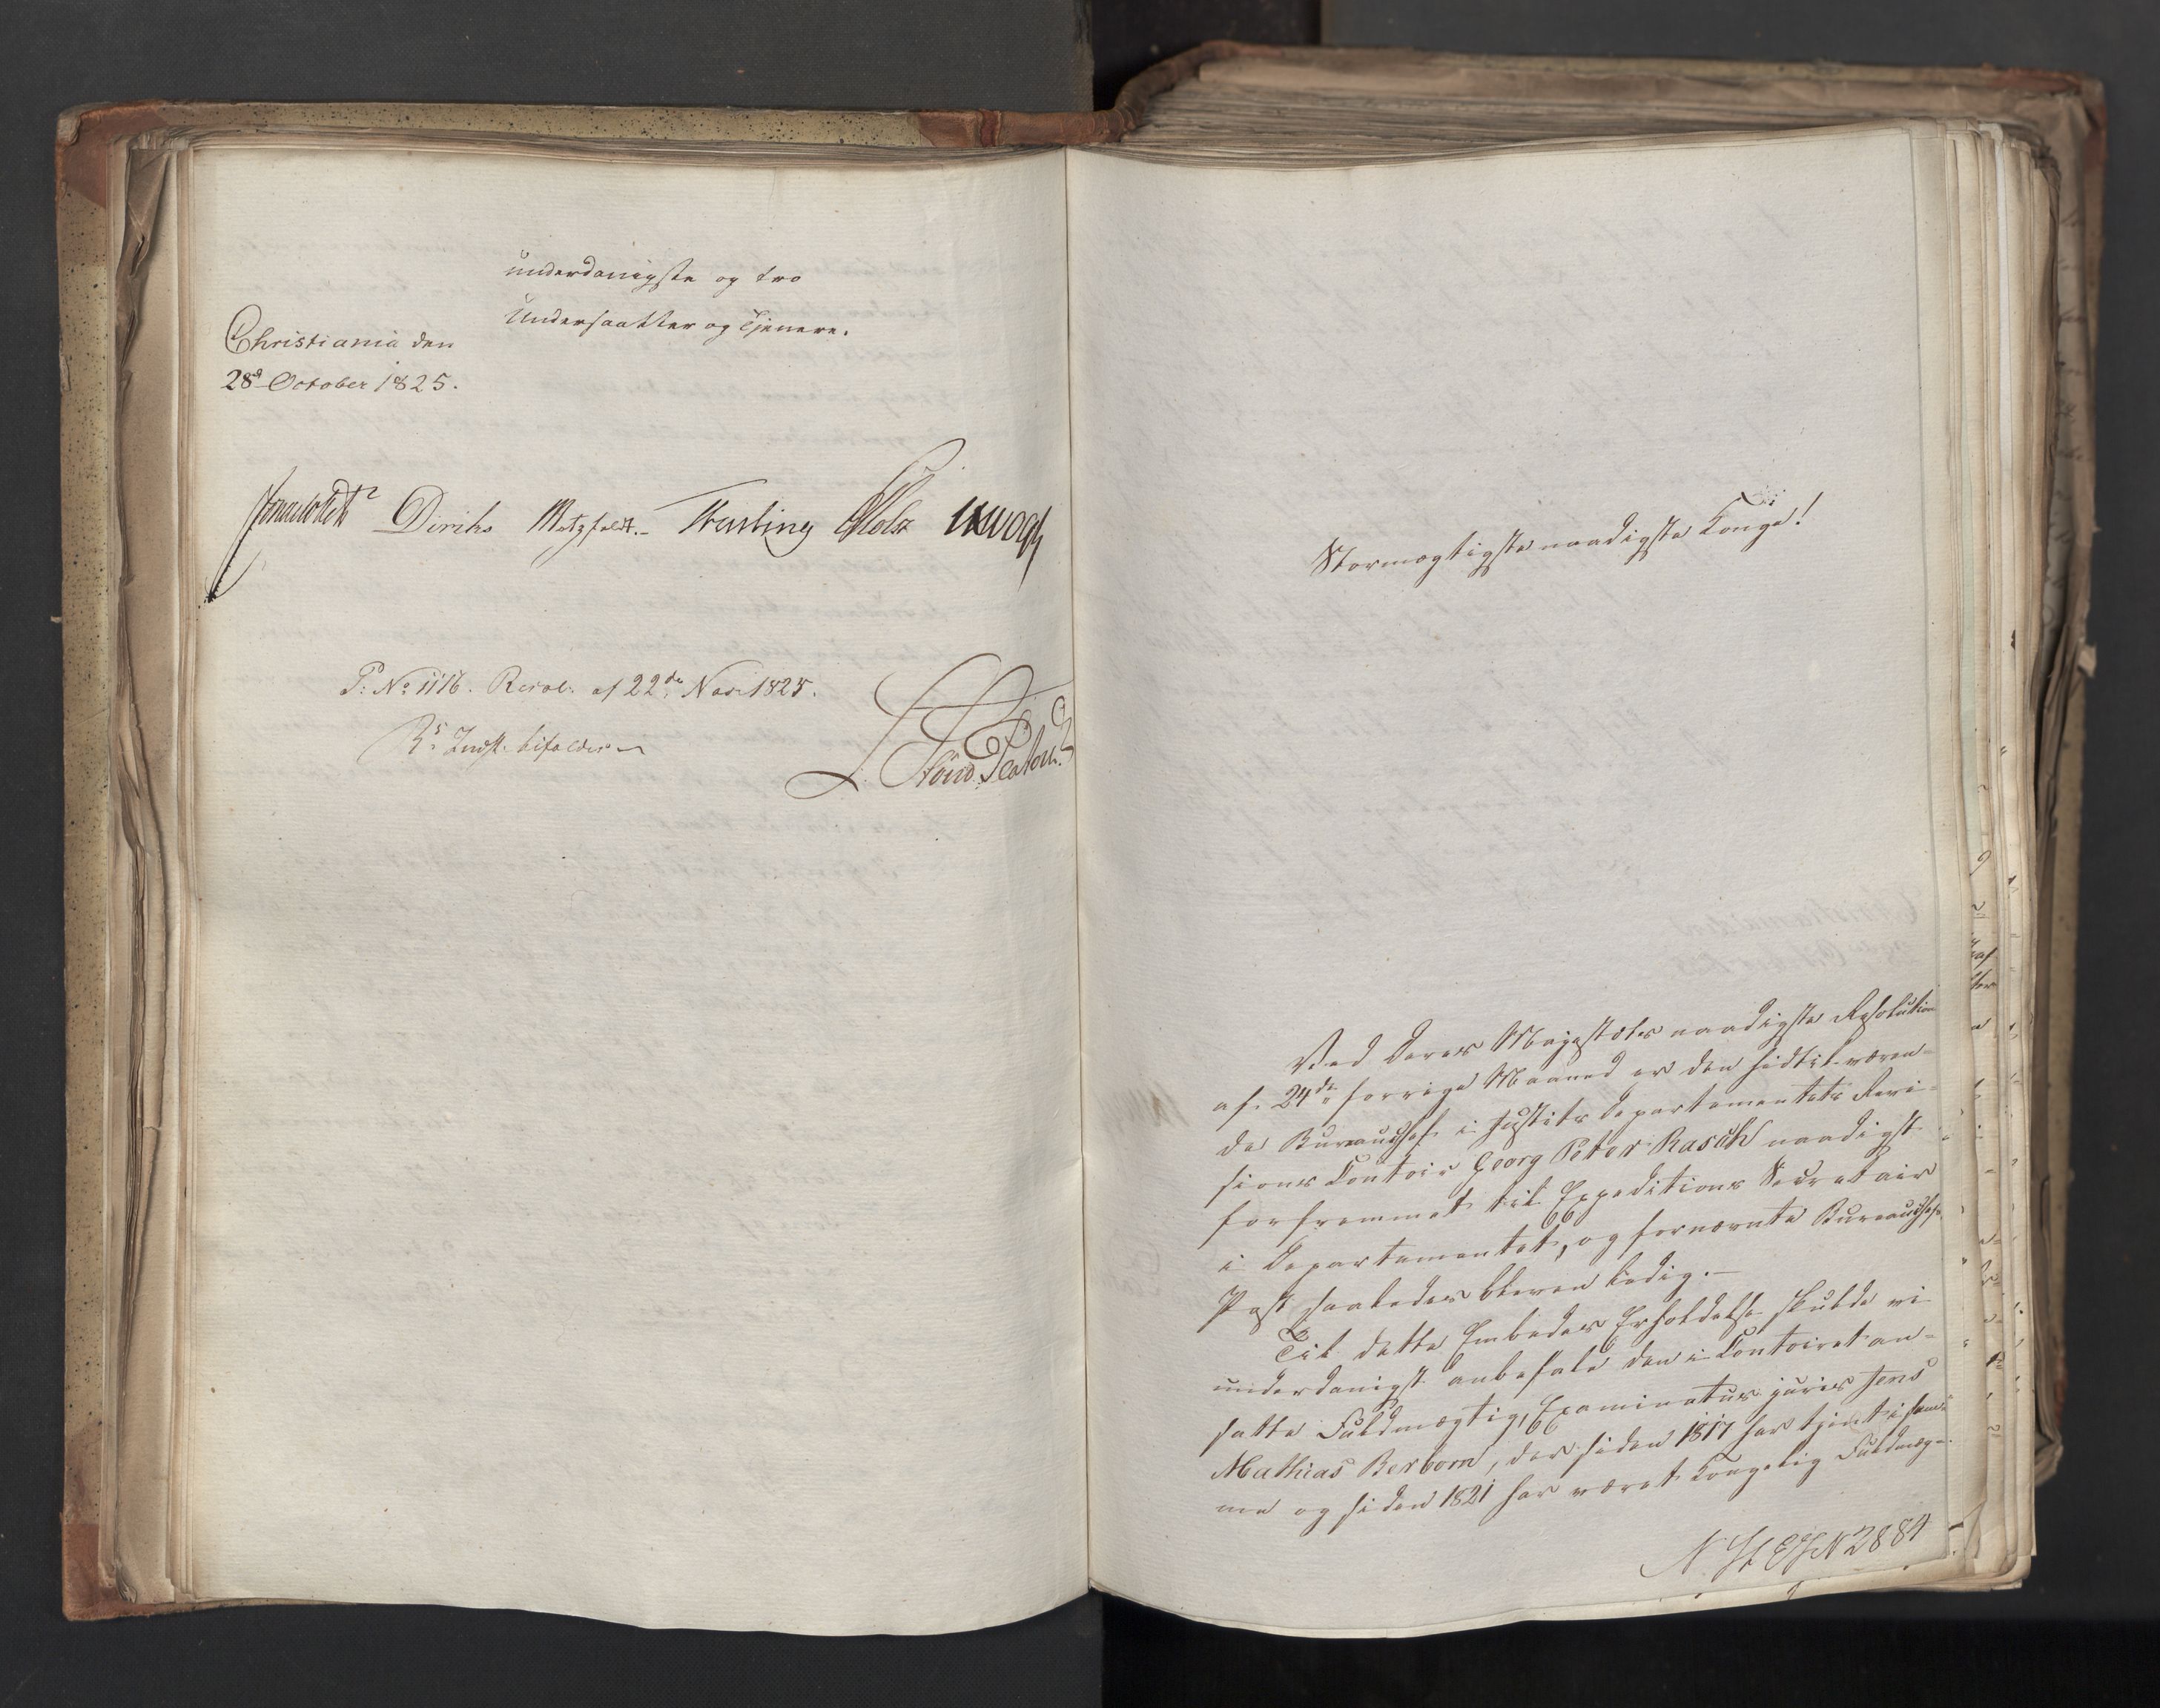 underdanigste og tro
Undersaatter og Tjenere.
Christiania den
28d October 1825.
Diriks Motzfeldt. Treschow Holst
P: No 1116. Resol: af 22de Nov: 1825.
Rs Indst. bifaldes
Stormægtigste naadigste Konge!
Ved Deres Majestæts naadigste Resolution
af 24de forrige Maaned er den hidtil væren-
de Bureauchef i Justits Departementets Revi-
sions Contoir Georg Peter Rasch naadigst
forfremmet til Expeditions Secretair
i Departementet, og fornævnte Bureauchefs
Post saaledes bleven ledig.-
Til dette Embedes Erholdelse skulde vi
underdanigst anbefale den i Contoiret an-
satte Fuldmægtig, Examinatus juris Jens
Mathias Berbom, der siden 1817 har tjent i sam-
me og siden 1821 har været Kongelig Fuldmæg-
N 2884